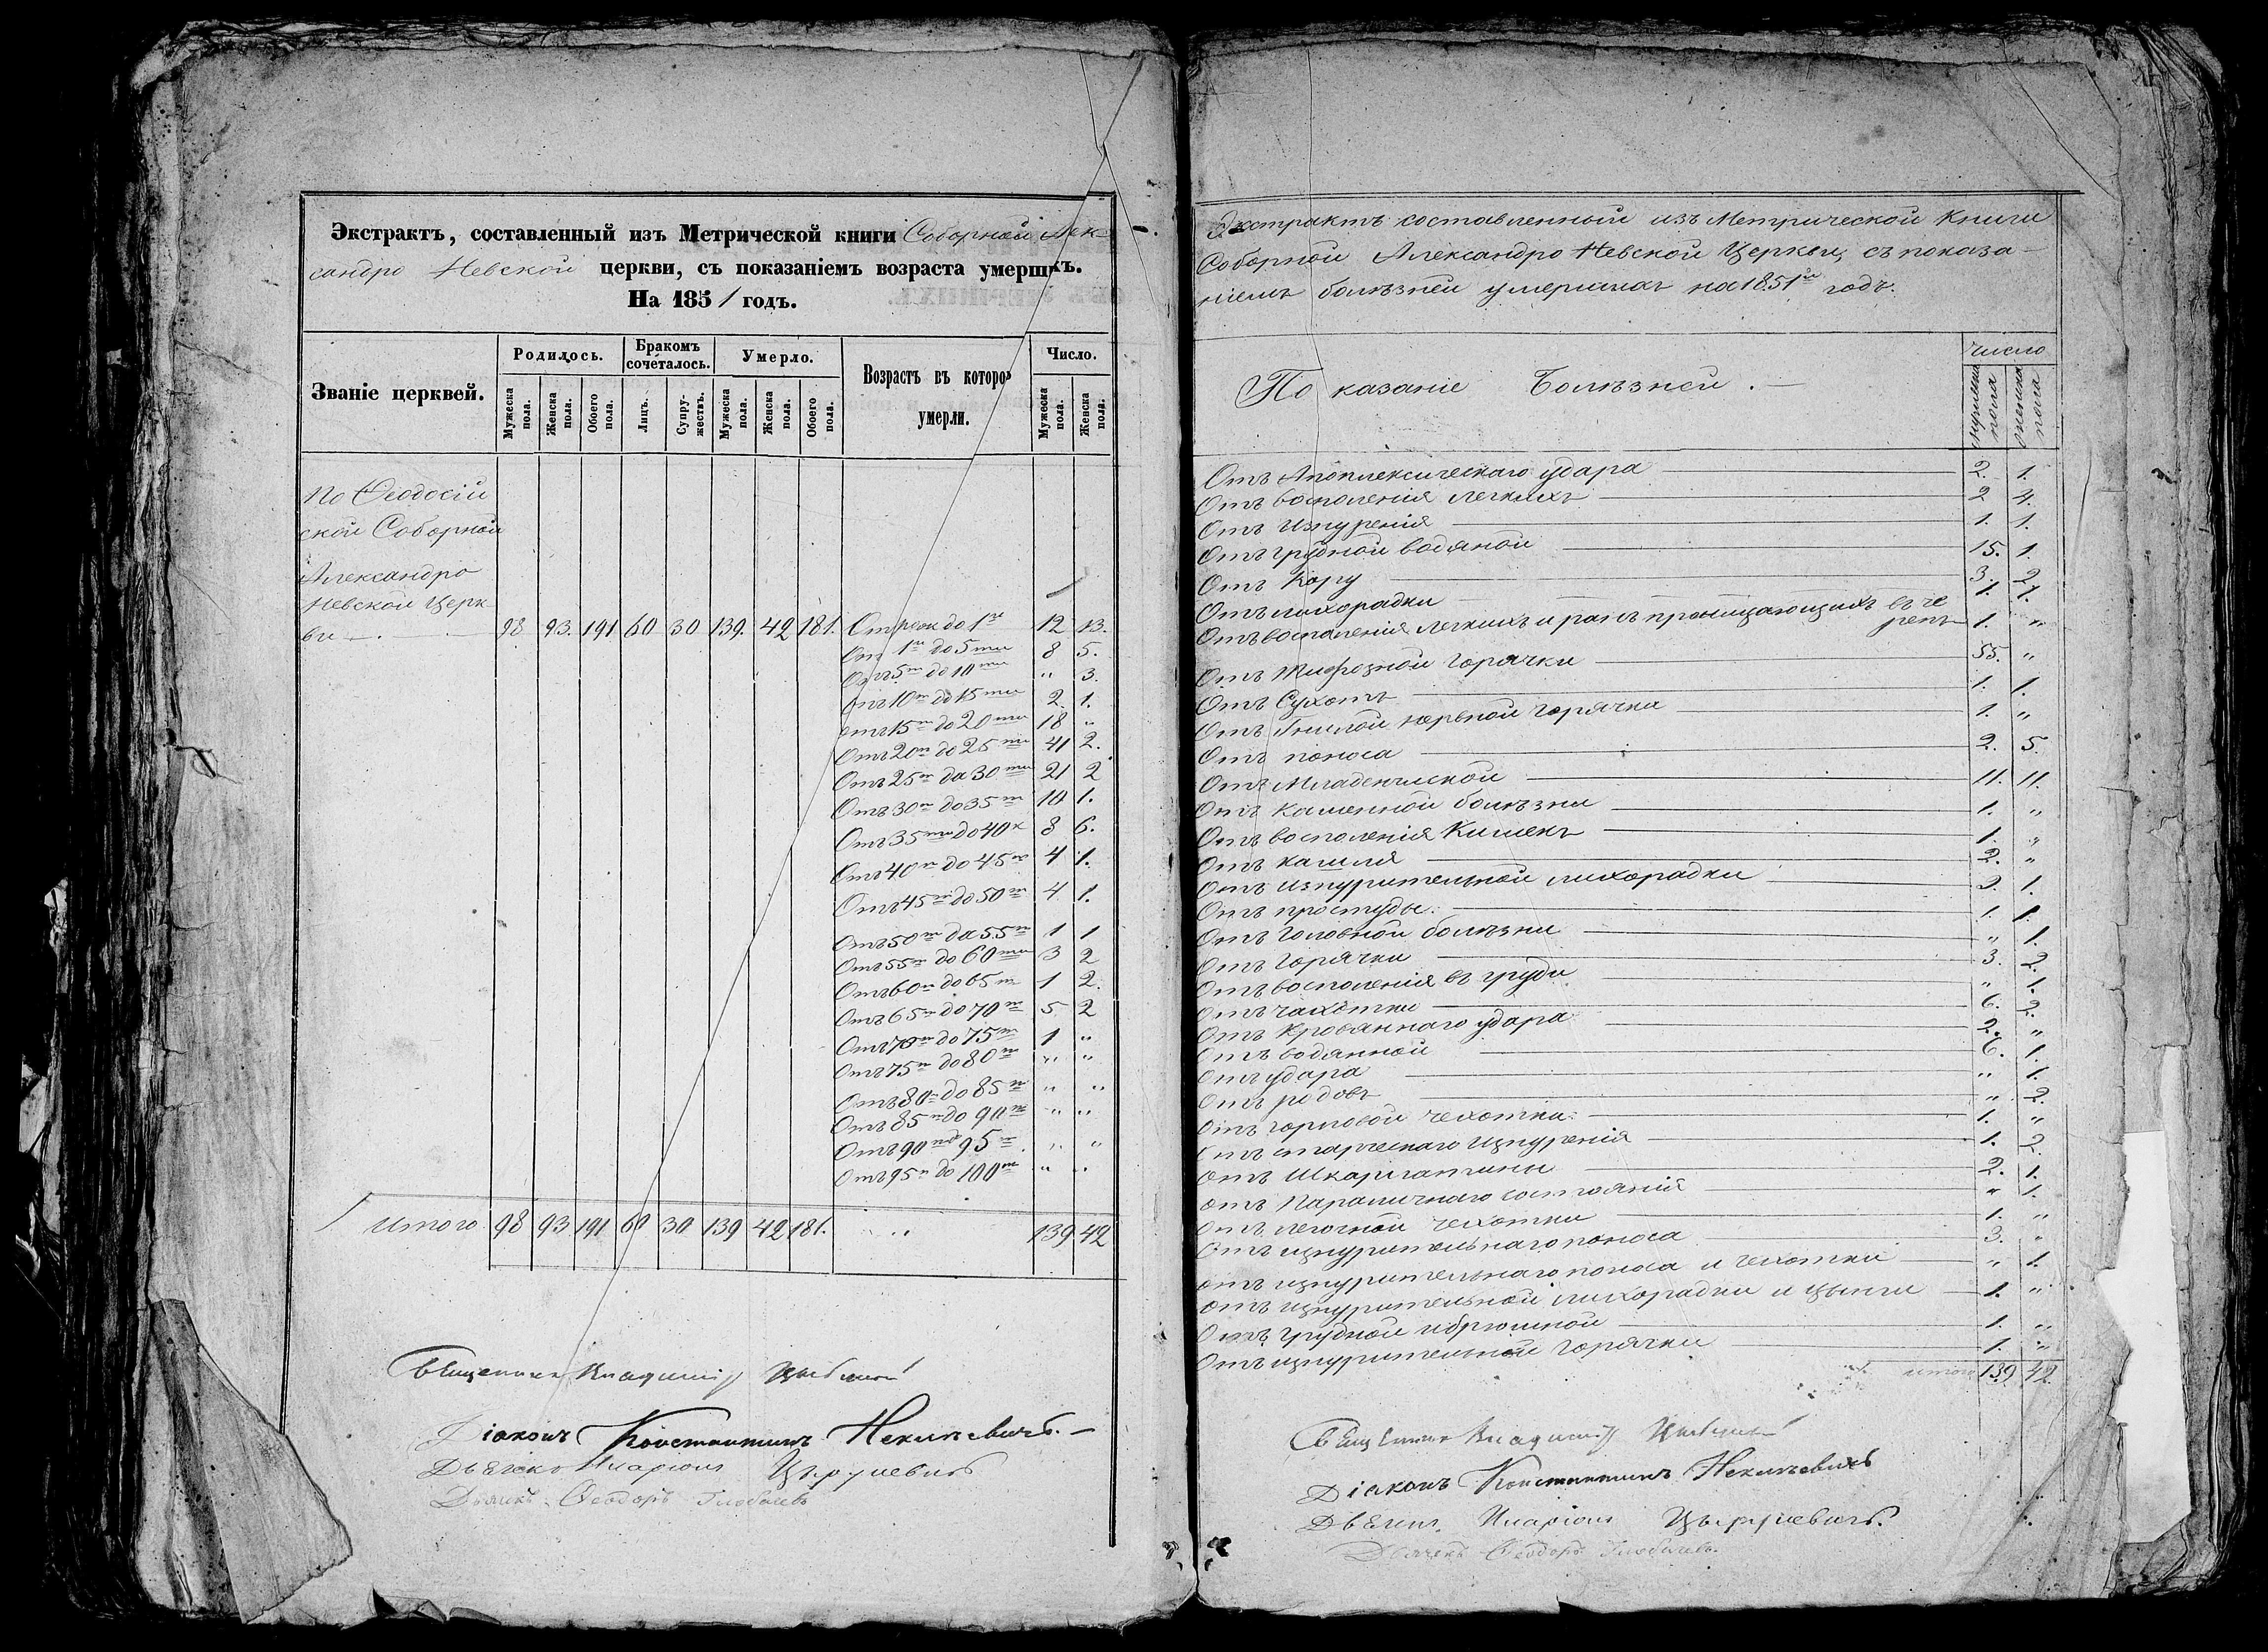 Экстрактъ, составленный изъ Метрической книги Соборной Алек
сандро Невской церкви, съ показаніемъ возраста умершихъ.
На 1851 годъ.
Званіе церквей.
Родилось.
Бракомъ сочеталось.
Умерло.
Возрастъ въ которо
умерли.
Число.
Мужеска пола.
Женска пола.
Обоего пола.
Лицъ.
Супружествъ.
Мужеска пола.
Женска пола.
Обоего пола.
Мужеска пола.
Женска пола.
По Ѳеодосій
ской Соборной
Александро
Невской Церк
ви 98 93. 191 60 30 139. 42 181. до 1го 12 13.
От 1го до 5ти 8 5.
Отъ 5ти до 10ти " 3.
Отъ 10ти до 15ти 2. 1.
Отъ 15ти до 20ти 18 "
Отъ 20ти до 25ти 41 2.
Отъ 25ти до 30ти 21 2
Отъ 30ти до 35ти 10 1.
Отъ 35ти до 40ка 8 6.
Отъ 40ка до 45ти 4 1.
Отъ 45ти до 50ти 4 1.
Отъ 50ти до 55ти 1 1
Отъ 55ти до 60ти 3 2
Отъ 60ти до 65ти 1 2.
Отъ 65ти до 70ти 5 2
Отъ 70ти до 75ти 1 "
Отъ 75ти до 80ти " "
Отъ 80ти до 85ти " "
Отъ 85ти до 90ти " "
Отъ 90 до 95ти " "
Отъ 95ти до 100та " "
Итого 98 93 191 60 30 139 42 181. " 139 42
Священникъ Владимиръ
Діаконъ Константинъ Некипевичъ.
Дьячекъ Иларіонъ
Дьячекъ Ѳеодоръ
Экстрактъ составленный изъ Метрической Книги
Соборной Александро Невской Церкви, съ показа-
ніемъ болѣзней умершихъ на 1851й годъ.
Показаніе Болѣзней.
Число
мужеска пола
женска пола
Отъ Апоплексическаго удара 2. 1.
Отъ восполенія легкихъ 2 4.
Отъ Изнуренія 1. 1.
Отъ грудной водяной 15. 1.
Отъ Кору 3. 2.
Отъ лихорадки 1. 1.
Отъ восполенія легкихъ и ранъ проницающихъ въ че
репъ 1. "
Отъ Тифозной горячки 55. "
Отъ Сухотъ 1. 1.
Отъ Гнилой нервной горячки 1. "
Отъ поноса 2. 5.
Отъ Младенческой 11. 11.
Отъ Каменной болѣзни 1. "
Отъ восполенія Кишекъ 1. "
Отъ кашля 2. "
Отъ изнурительной лихорадки 3. 1.
Отъ простуды. 1. 1.
Отъ Головной болѣзни " 1.
Отъ Горячки 3. 2.
Отъ восполенія въ груди " 1.
Отъ чахотки 6. 2.
Отъ Кровяннаго удара 2. "
Отъ водянной 6. 1.
Отъ удара " 1.
Отъ родовъ " 2.
Отъ горловой чехотки 1. "
Отъ старческаго Изнуренія 1. 2.
Отъ Шкарлатины 2. 1.
Отъ Параличнаго состоянія " 1.
Отъ легочной чехотки 1. "
Отъ изнурительнаго поноса 3. "
Отъ изнурительнаго поноса и чехотки " 1.
Отъ изнурительной лихорадки и цынги 1. "
Отъ грудной и брюшной 1. "
Отъ изнурительной Горячки 1. "
итого 139 42
Священникъ Владимиръ
Діаконъ Константинъ Некипевичъ
Дьячекъ Иларіонъ
Дьячекъ Ѳеодоръ